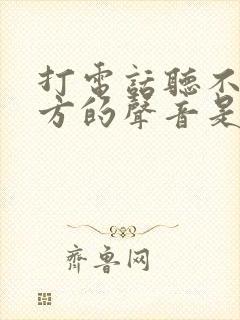 打電話聽不
方的聲音是
齊魯网